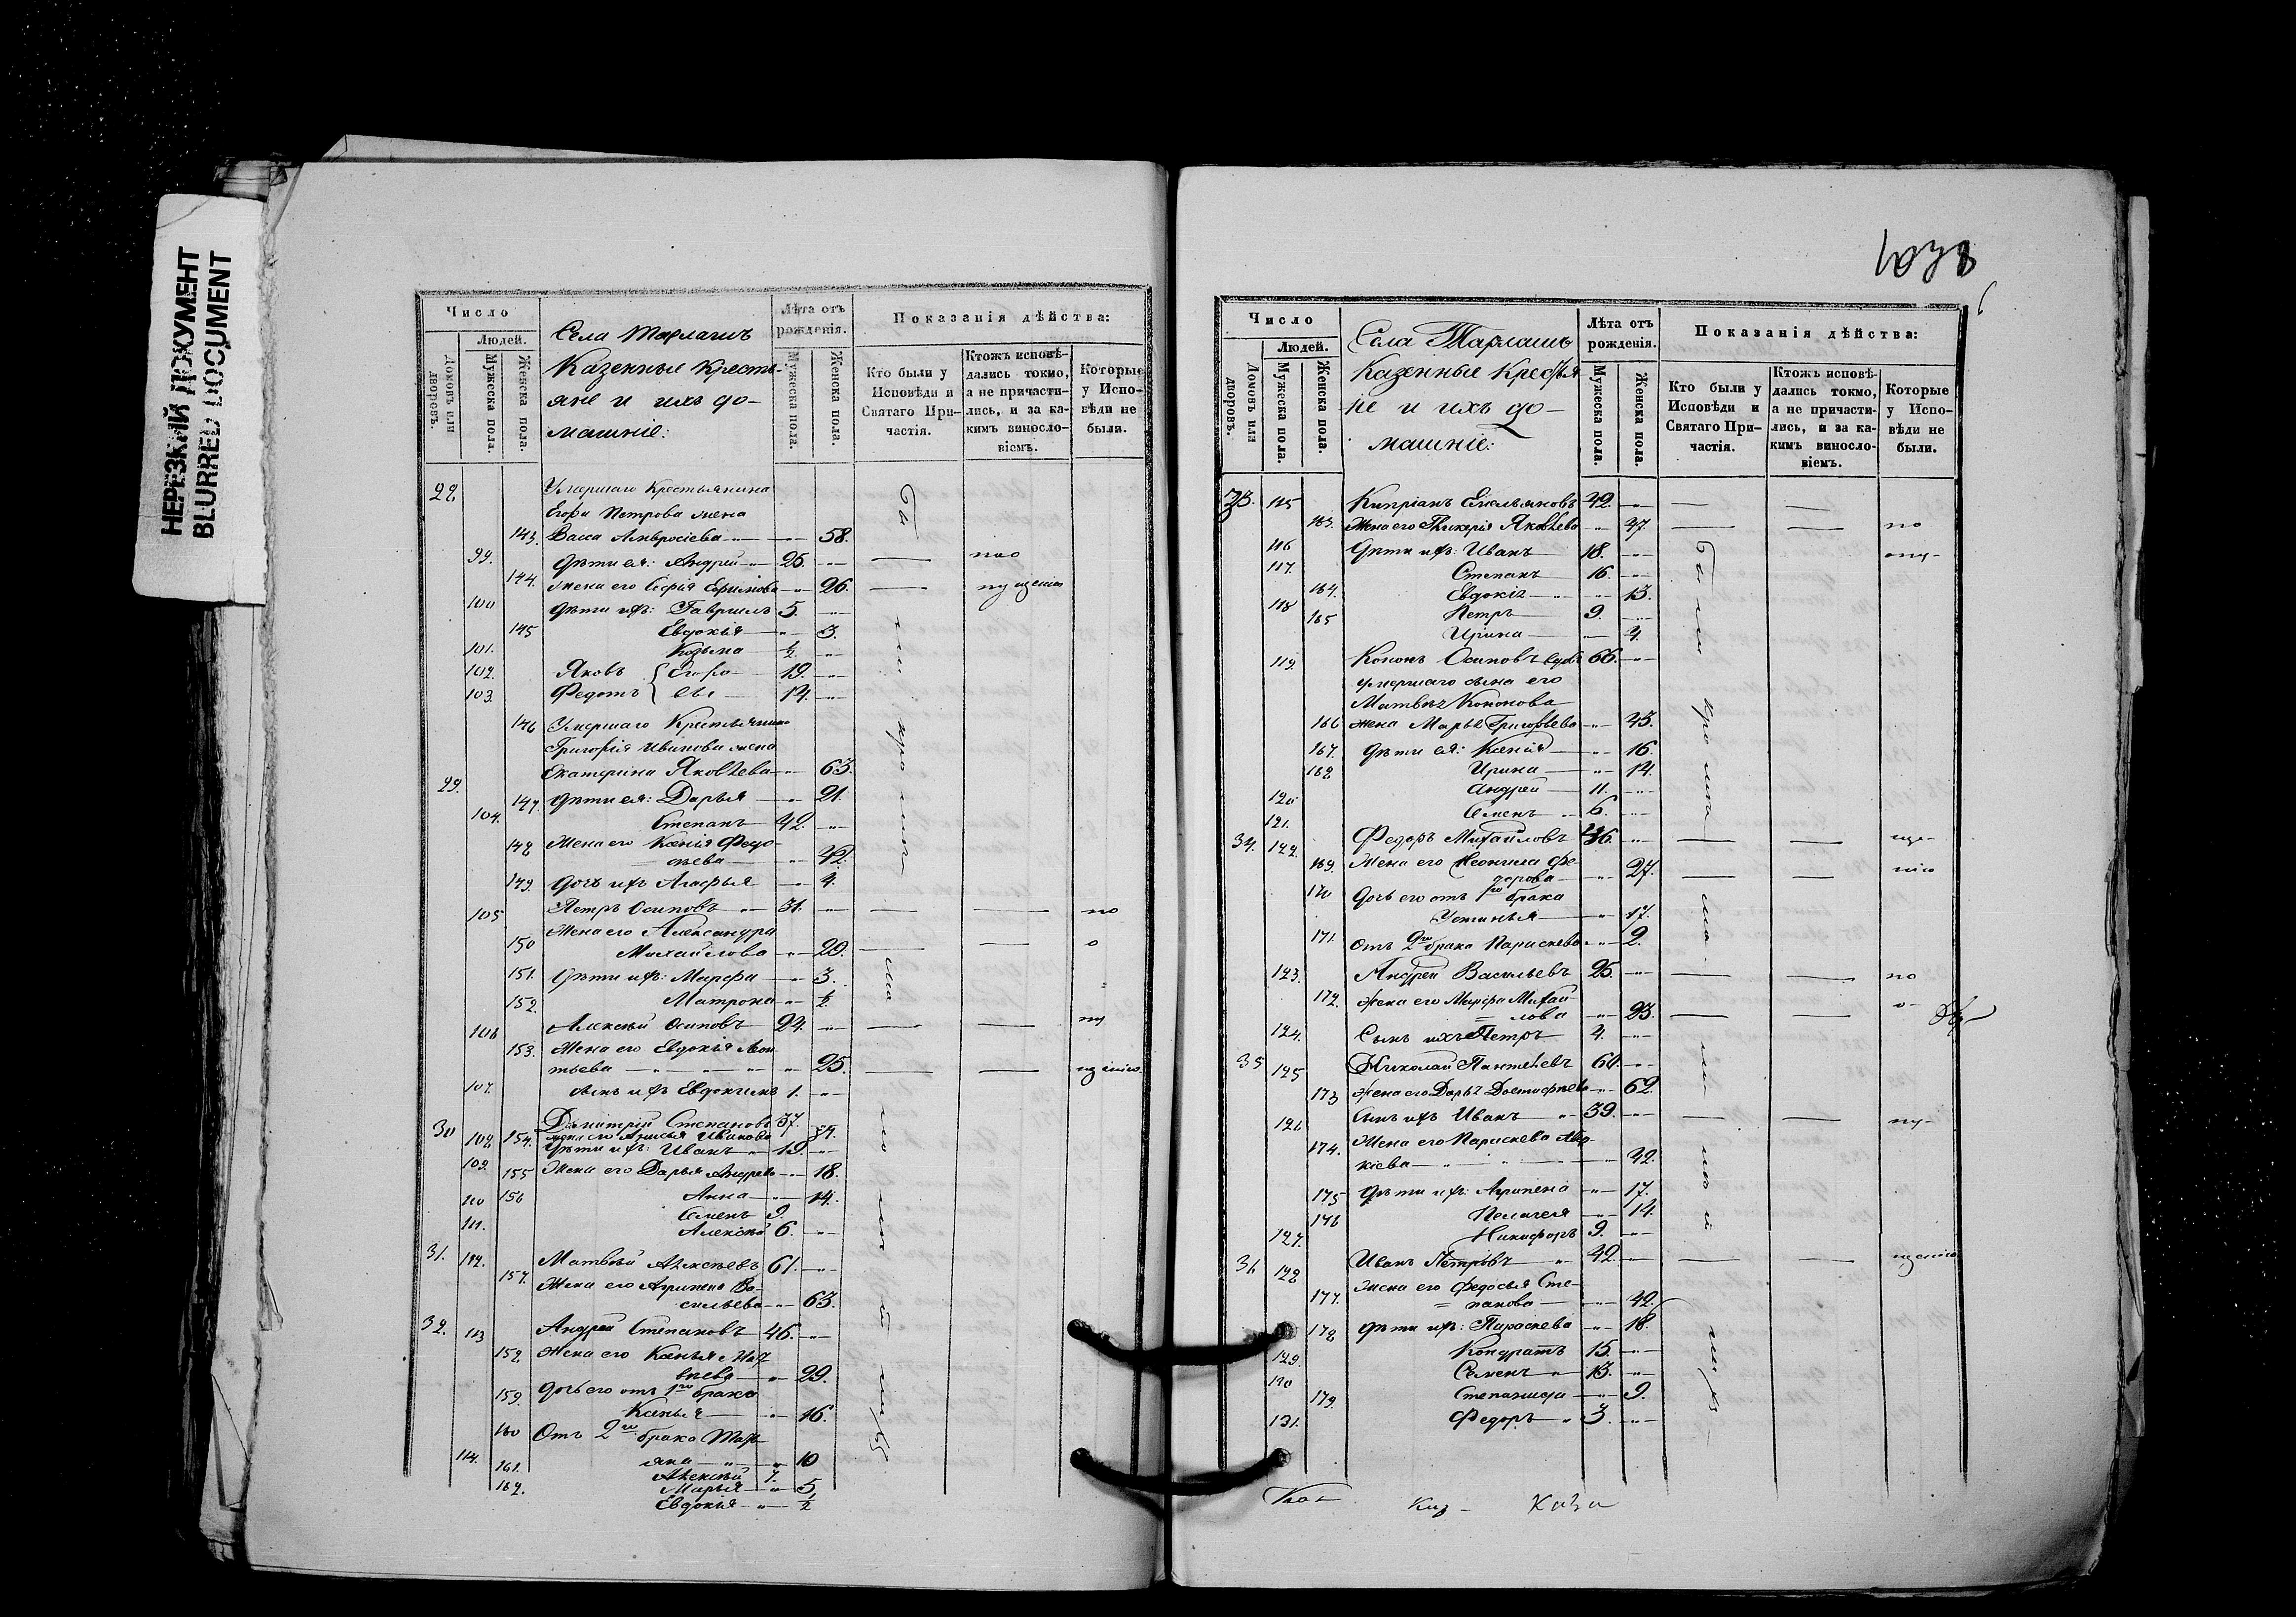 НЕРЕЗКИЙ ДОКУМЕНТ
BLURRED DOCUMENT
Число
Людей.
Домовъ или дворовъ.
Мужеска пола.
Женска пола.
Села Тарлашъ
Казенные Кресть-
яне и ихъ до-
машніе:
Лѣта отъ рожденія.
Мужеска пола.
Женска пола.
Показанія дѣйства:
Кто были у Исповѣди и Святаго При-частія.
Ктожъ исповѣ-дались токмо, а не причасти-лись, и за ка-кимъ винословіемъ.
Которые у Испо-вѣди не были.
Умершаго Крестьянина
Егора Петрова жена
143. Васса Амвросіева 58.
99. Дѣти ея: Андрей 26.
144. Жена его Софія Ефимова 26.
100 Дѣти ихъ: Гавріилъ 5.
145 Евдокія 3.
101. Козьма ½
102. Яковъ Егоро- 19.
103. Федотъ вы 14.
146 Умершаго Крестьянина
Григорія Иванова жена
Екатерина Яковлева 63.
29.
147. Дѣти ея: Дарья 21.
104. Степанъ 42.
148 Жена его Ксенія Федо-
149. Дочь ихъ Агафья 4.
105 Петръ Осиповъ 31. по
Жена его Александра
150 Михайлова 29.
151. Дѣти ихъ: Марфа 3.
152. Матрона ½
106 Алексѣй Осиповъ 24.
153. Жена его Евдокія Леон
тьева 25.
107. сынъ ихъ Евдокимъ 1.
30 108 Димитрій Степановъ 37.
154. жена его Анисья Иванова
Дѣти ихъ: Иванъ 19.
109. 155 Жена его Дарья Андреева 18.
110 156 Анна 14.
Семенъ 9.
111. Алексѣй 6.
31. 112. Матвѣй Алексѣевъ 61.
157. Жена его Агрипена Ва-
сильева 63.
32. 113 Андрей Степановъ 46.
158 Жена его Ксенья Мат
вѣева 29.
159. Дочь его отъ 1го брака
Ксенья 16.
160 Отъ 2го брака Тать
яна 10
114. 161. Алексѣй 7.
162. Марья 5.
Евдокія ½
Число
Людей.
Домовъ или дворовъ.
Мужеска пола.
Женска пола.
Села Тарлашъ
Казенные Крестья
не и ихъ до-
машніе:
Лѣта отъ рожденія.
Мужеска пола.
Женска пола.
Показанія дѣйства:
Кто были у Исповѣди и Святаго При-частія.
Ктожъ исповѣ-дались токмо, а не причасти-лись, и за ка-кимъ винословіемъ.
Которые у Испо-вѣди не были.
33. 115 Кипріанъ Емельяновъ 42.
163. Жена его Гликерія Яковлева 47. по
116 Дѣти ихъ: Иванъ 18. опу-
117. Степанъ 16.
164. Евдокія 13.
118 Петръ 9.
165 Ирина 4.
119. Кононъ Осиповъ вдов 66.
умершаго сына его
Матвѣя Кононова
166 жена Марья Григорьева 43.
167. Дѣти ея: Ксенія 16.
168 Ирина 14.
120 Андрей 11.
121. Семенъ 6.
34. 122. Федоръ Михайловъ 46. ще-
169. Жена его Неонила Фе-
дорова 27. нію
170 Дочь его отъ 1го брака
Устинья 17.
171. Отъ 2го брака Параскева 2.
123. Андрей Васильевъ 25. по
172. Жена его Марфа Михай-
лова 23.
124. Сынъ ихъ Петръ 4.
35 125 Николай Пантелеевъ 60.
173 Жена его Дарья 62.
126 Сынъ ихъ Иванъ 39. пу-
174. Жена его Параскева
кіева 42.
175 Дѣти ихъ: Агрипена 17.
176 Пелагея 14.
127. Никифоръ 9.
36 128 Иванъ Петровъ 42. щенію
177. Жена его Федосья Сте-
панова 42.
178 Дѣти ихъ: Параскева 18.
129. Кондратъ 15.
130 Семенъ 13.
179. Степанида 9.
131. Федоръ 3.